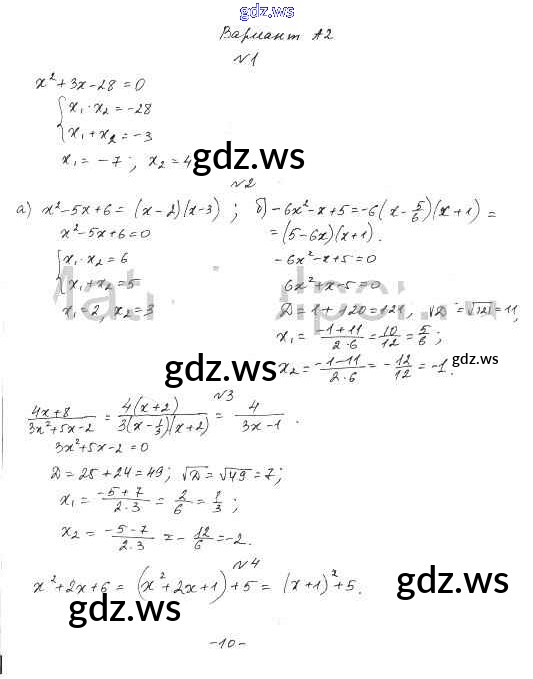 gdz.ws
Вариант А2
№1
x²+3x-28=0
{x₁·x₂=-28
{x₁+x₂=-3
x₁=-7; x₂=4
gdz.ws
№2
а) x²-5x+6=(x-2)(x-3); б) -6x²-x+5=-6(x-5/6)(x+1)=
=(5-6x)(x+1).
x²-5x+6=0
-6x²-x+5=0
{x₁·x₂=6
{x₁+x₂=5
6x²+x-5=0
x₁=2, x₂=3
Д=1+120=121, √Д=√121=11,
x₁=(-1+11)/(2·6)=10/12=5/6;
x₂=(-1-11)/(2·6)=-12/12=-1.
gdz.ws
gdz.ws
№3
(4x+8)/(3x²+5x-2)=4(x+2)/(3(x-1/3)(x+2))=4/(3x-1).
3x²+5x-2=0
Д=25+24=49; √Д=√49=7;
x₁=(-5+7)/(2·3)=2/6=1/3;
gdz.ws
x₂=(-5-7)/(2·3)=-12/6=-2.
№4
x²+2x+6=(x²+2x+1)+5=(x+1)²+5.
gdz.ws
gdz.ws
-10-
gdz.ws